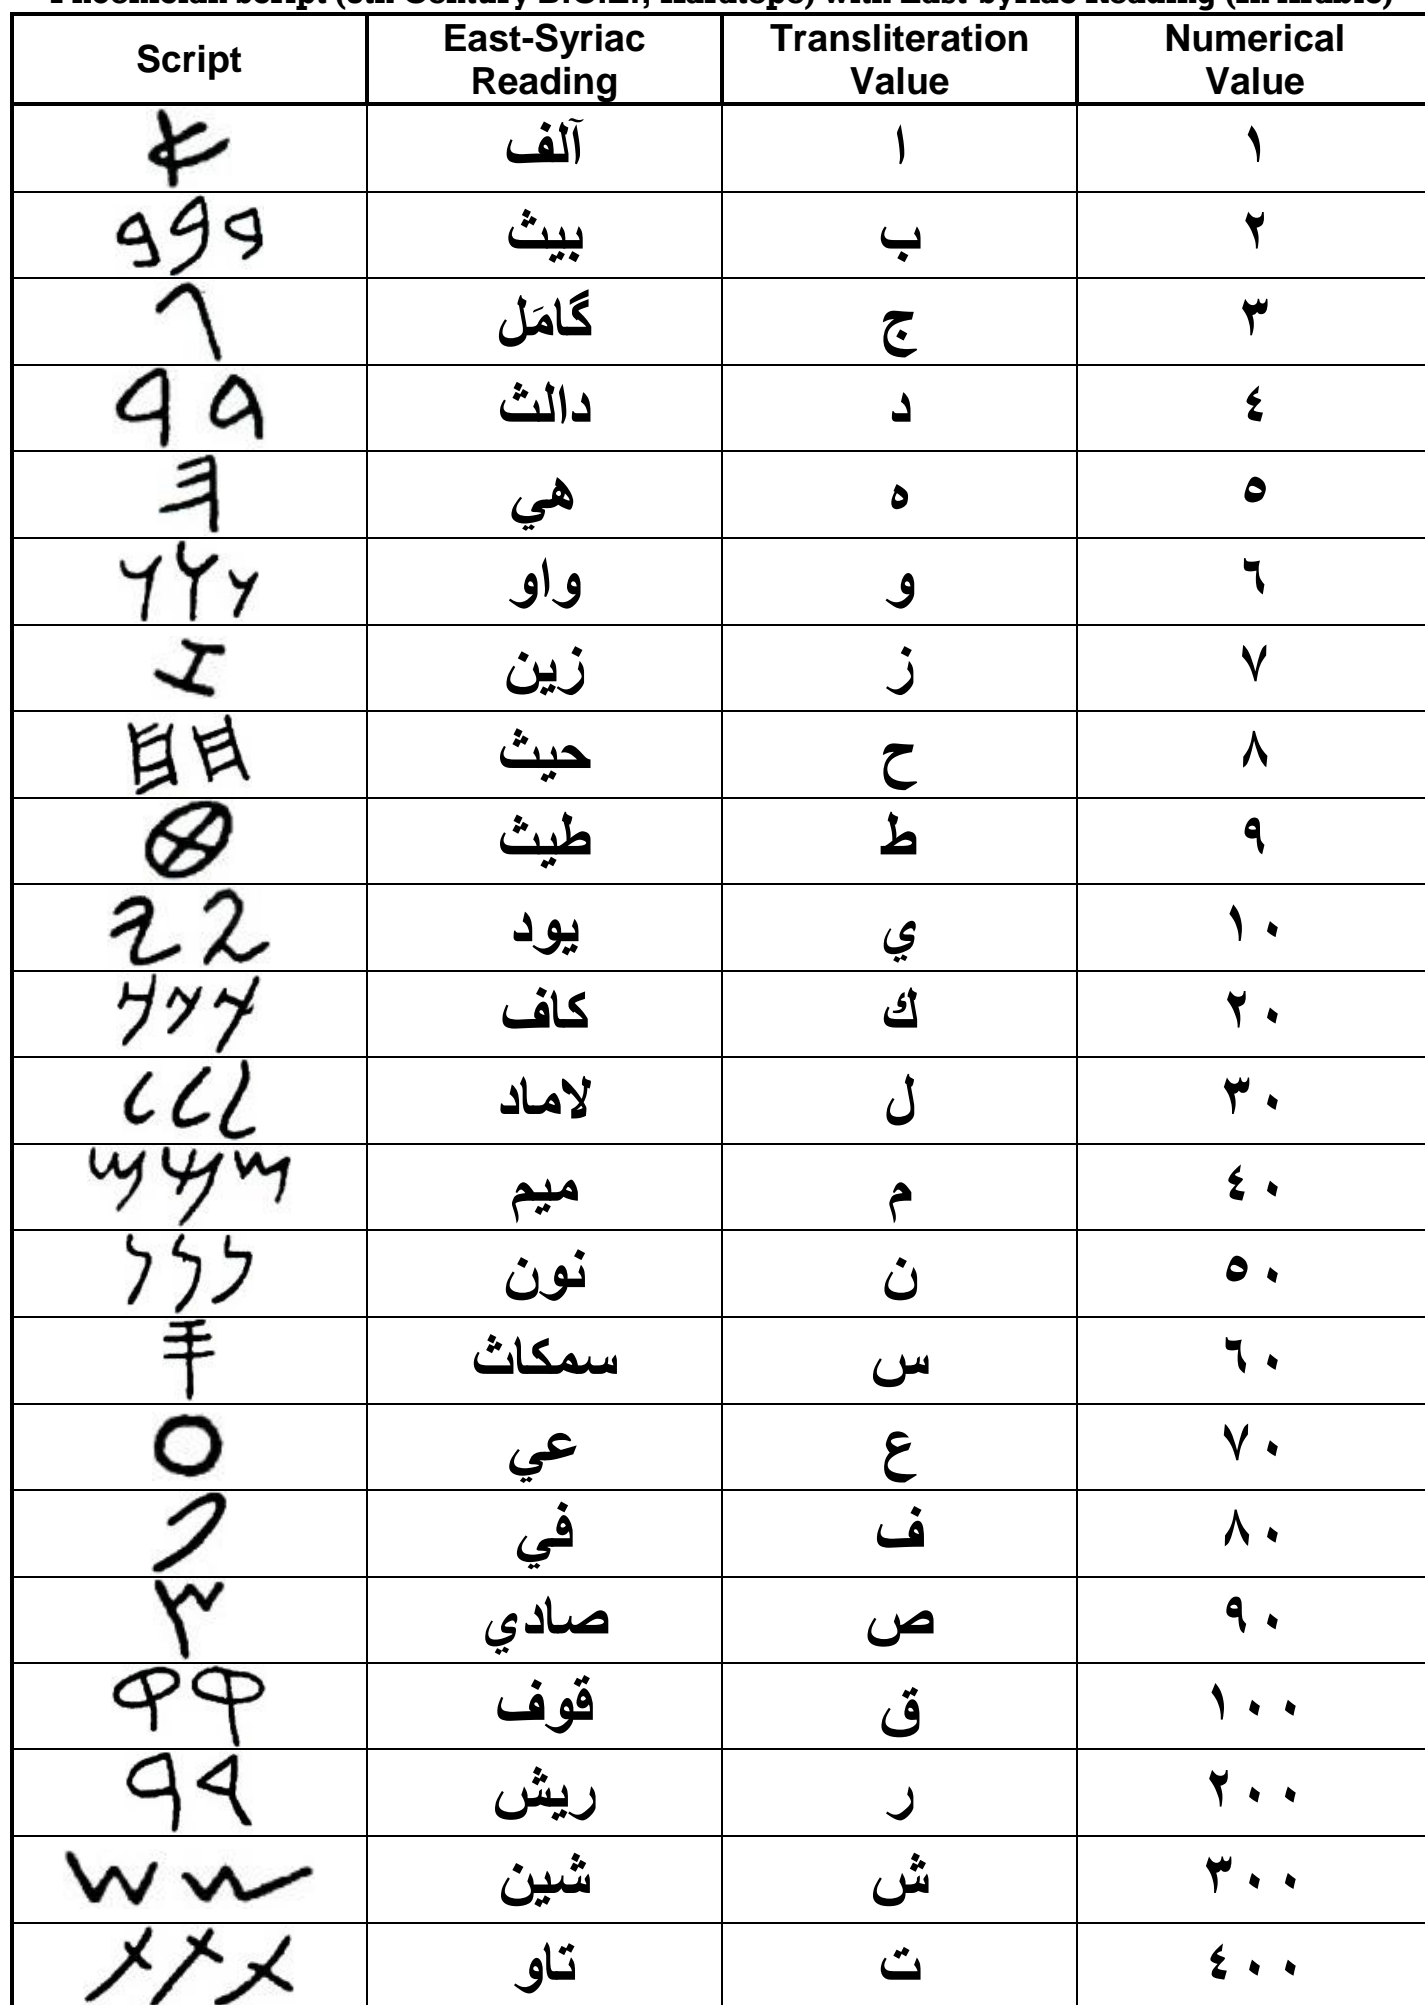 Phoenician script (8th Century B.C.E., Karatepe) with East-Syriac Reading (in Arabic)
Script East-Syriac Reading Transliteration Value Numerical Value
𐤀 آلف ا ١
𐤁 𐤁 𐤁 بيث ب ٢
𐤂 گامَل ج ٣
𐤃 𐤃 دالث د ٤
𐤄 هي ه ٥
𐤅 𐤅 𐤅 واو و ٦
𐤆 زين ز ٧
𐤇 𐤇 حيث ح ٨
𐤈 طيث ط ٩
𐤉 𐤉 يود ي ١٠
𐤊 𐤊 𐤊 كاف ك ٢٠
𐤋 𐤋 𐤋 لاماد ل ٣٠
𐤌 𐤌 𐤌 ميم م ٤٠
𐤍 𐤍 𐤍 نون ن ٥٠
𐤎 سمكاث س ٦٠
𐤏 عي ع ٧٠
𐤐 في ف ٨٠
𐤑 صادي ص ٩٠
𐤒 𐤒 قوف ق ١٠٠
𐤓 𐤓 ريش ر ٢٠٠
𐤔 𐤔 شين ش ٣٠٠
𐤕 𐤕 𐤕 تاو ت ٤٠٠